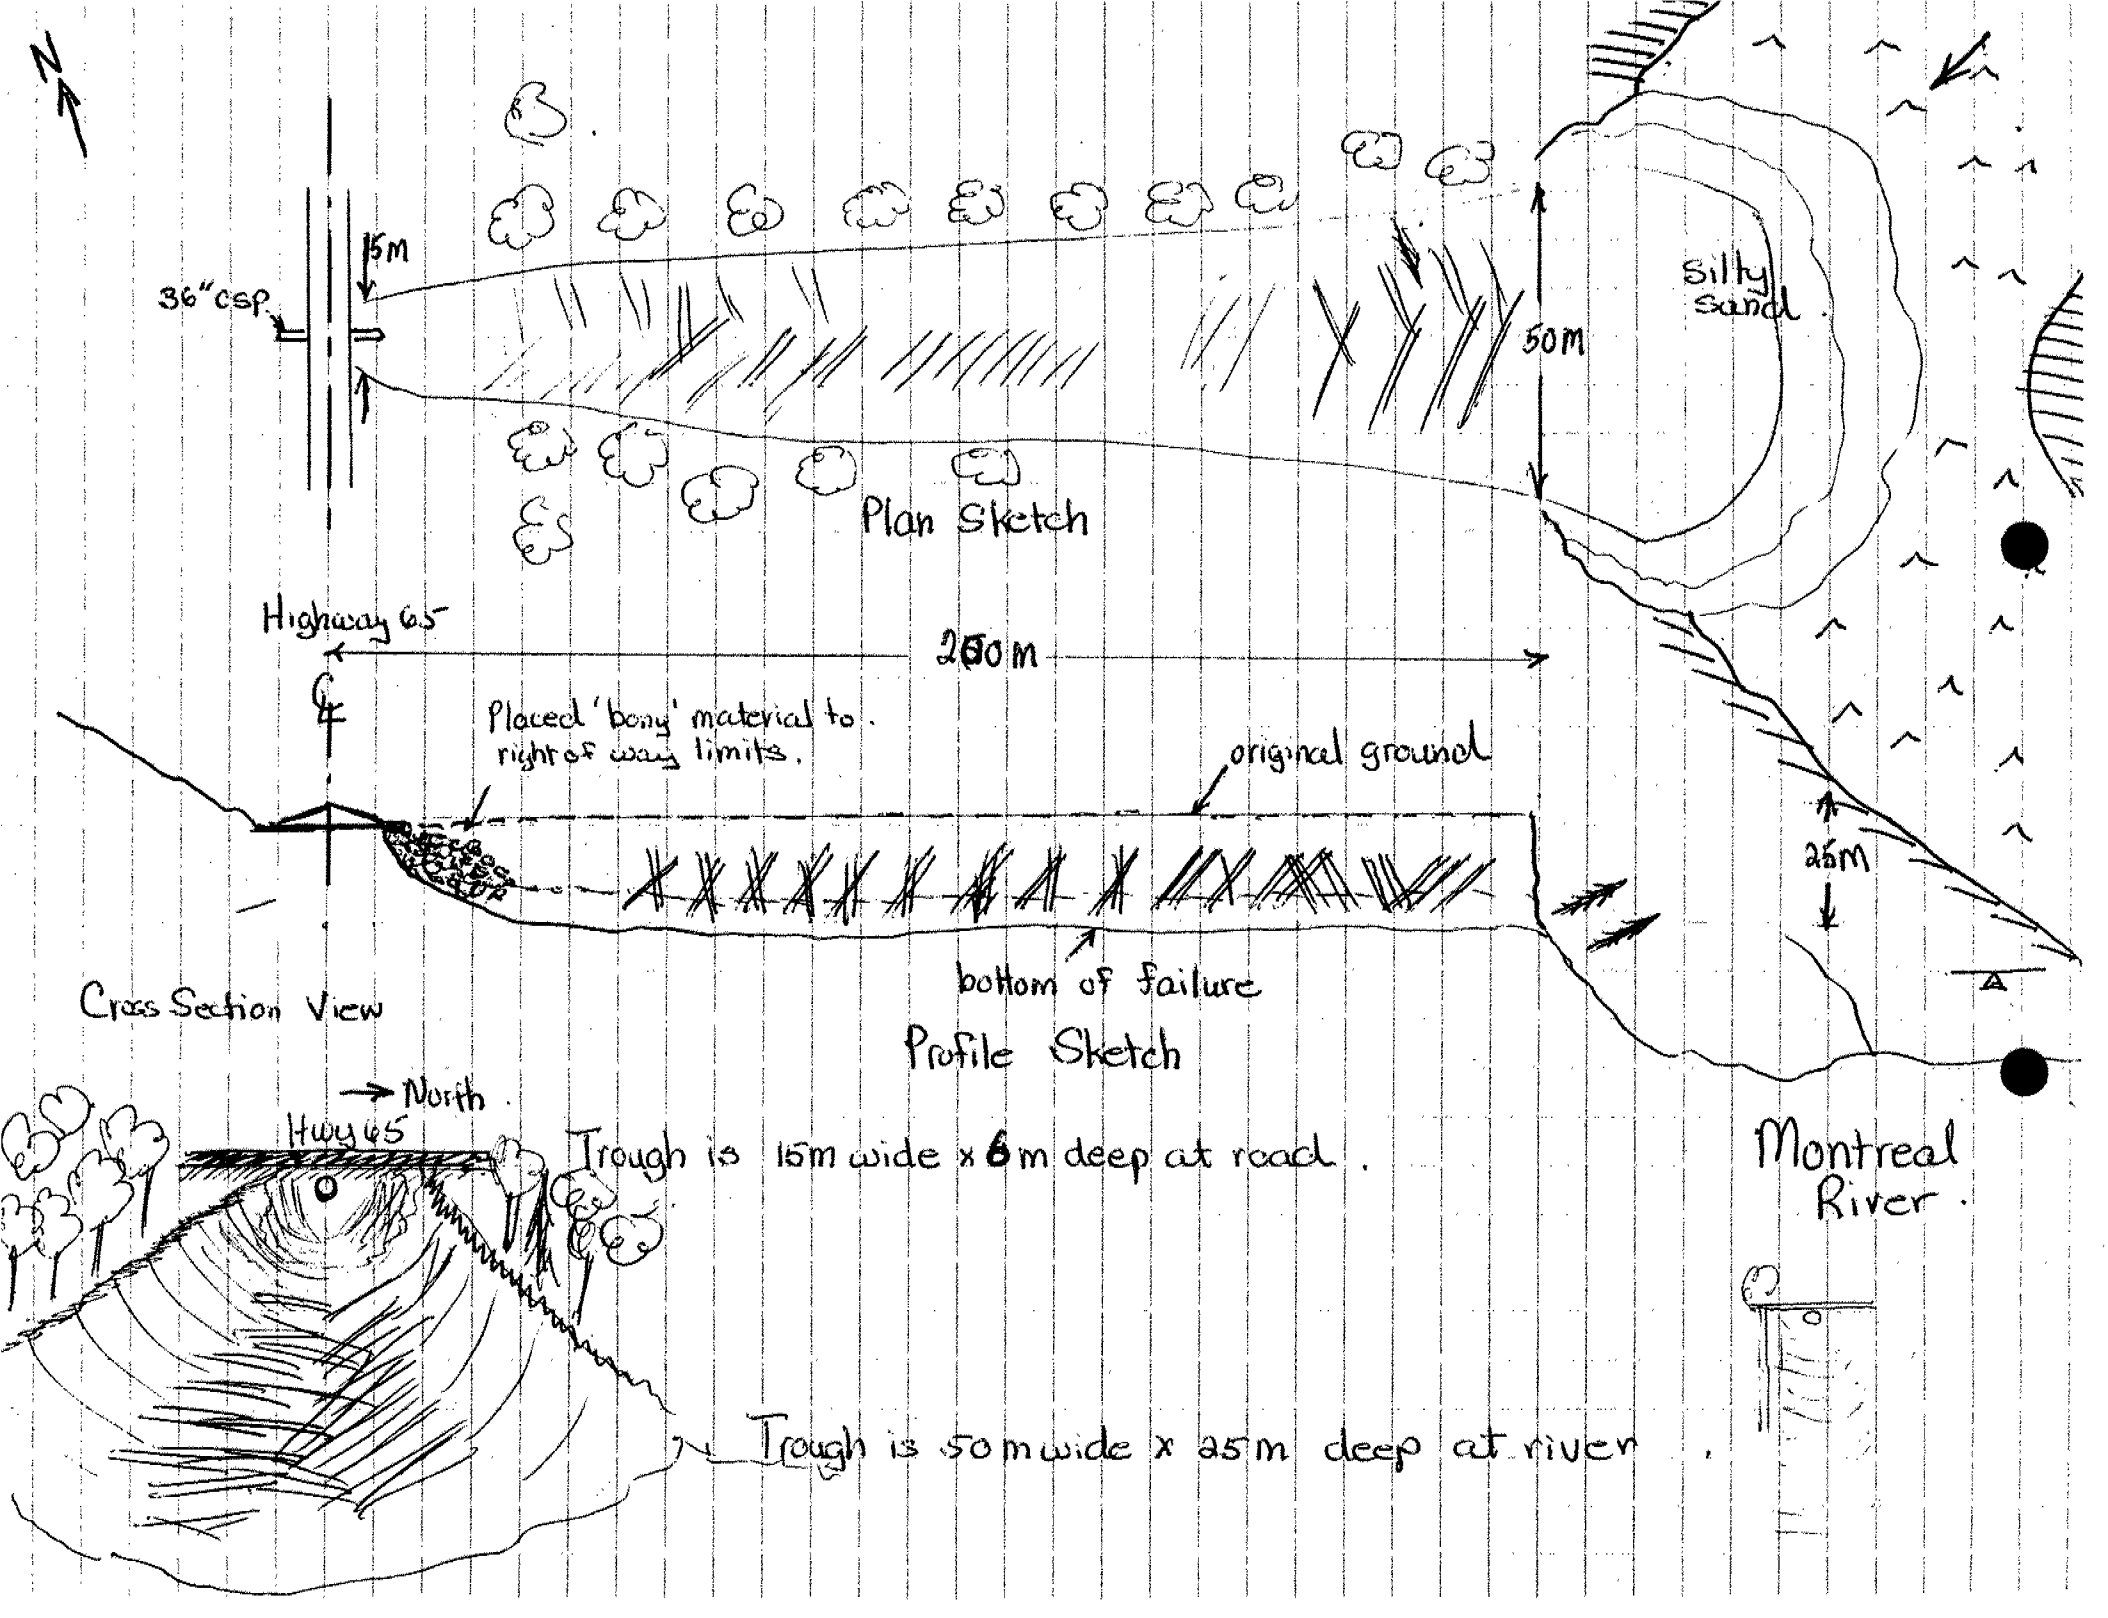 N
15m
36" CSP
Silty
sand
50m
Plan Sketch
Highway 65
℄
Placed 'bony' material to
right of way limits.
original ground
25m
bottom of failure
Cross Section View
Profile Sketch
North
Hwy 65
Trough is 15m wide x 6m deep at road.
Montreal
River.
Trough is 50m wide x 25m deep at river.